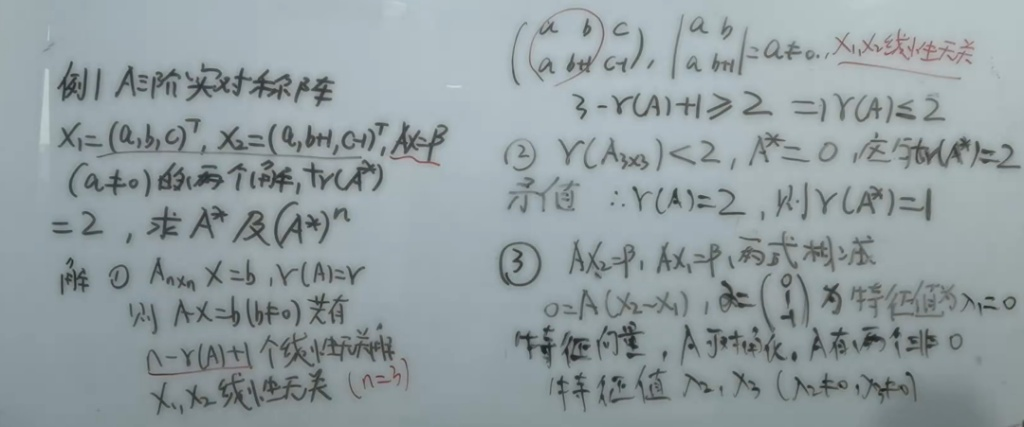 例1 A三阶实对称阵
X₁=(a,b,c)ᵀ, X₂=(a,b+1,c-1)ᵀ, AX=β
(a≠0)的两个解,tr(A*)
=2, 求A*及(A*)ⁿ
解 ① Aₙₓₙ X=b, r(A)=r
则 AX=b(b≠0)若有
n-r(A)+1 个线性无关解
X₁, X₂线性无关 (n=3)
(a b c
a b+1 c-1), |a b
a b+1|=a≠0.. X₁,X₂线性无关
3-r(A)+1≥2 ⇒ r(A)≤2
② r(A₃ₓ₃)<2, A*=0, 这与tr(A*)=2
矛值 ∴r(A)=2, 则r(A*)=1
③ AX₂=β, AX₁=β, 两式相减
0=A(X₂-X₁), α=(0
1
-1) 为特征值为λ₁=0
特征向量, A可对角化。A有两个非0
特征值 λ₂, λ₃ (λ₂≠0,λ₃≠0)